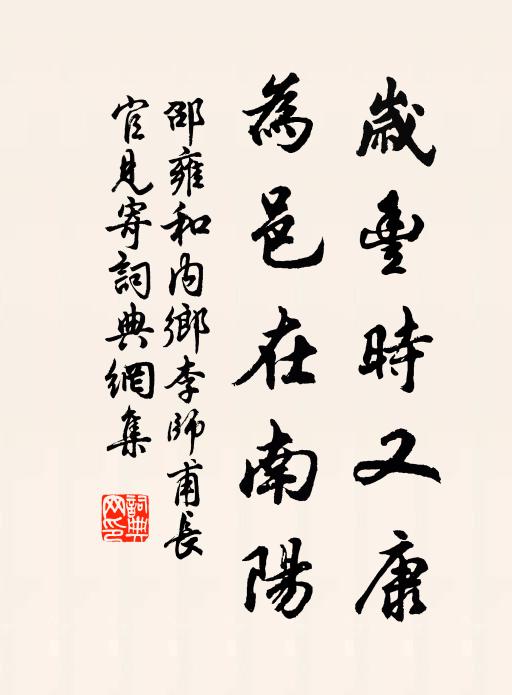 歲豐時又康
為邑在南陽
邵雍和內鄉李師甫長
官見寄詞典網集
詞典
網印